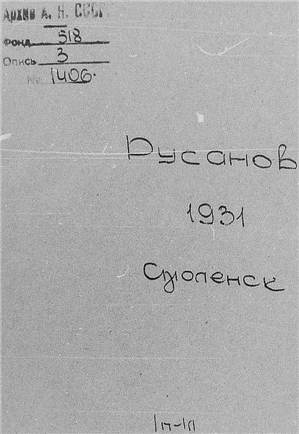 Архив А. Н. СССР.
Фонд 518
Опись 3
№ 1406.
Русанов
1931
Смоленск